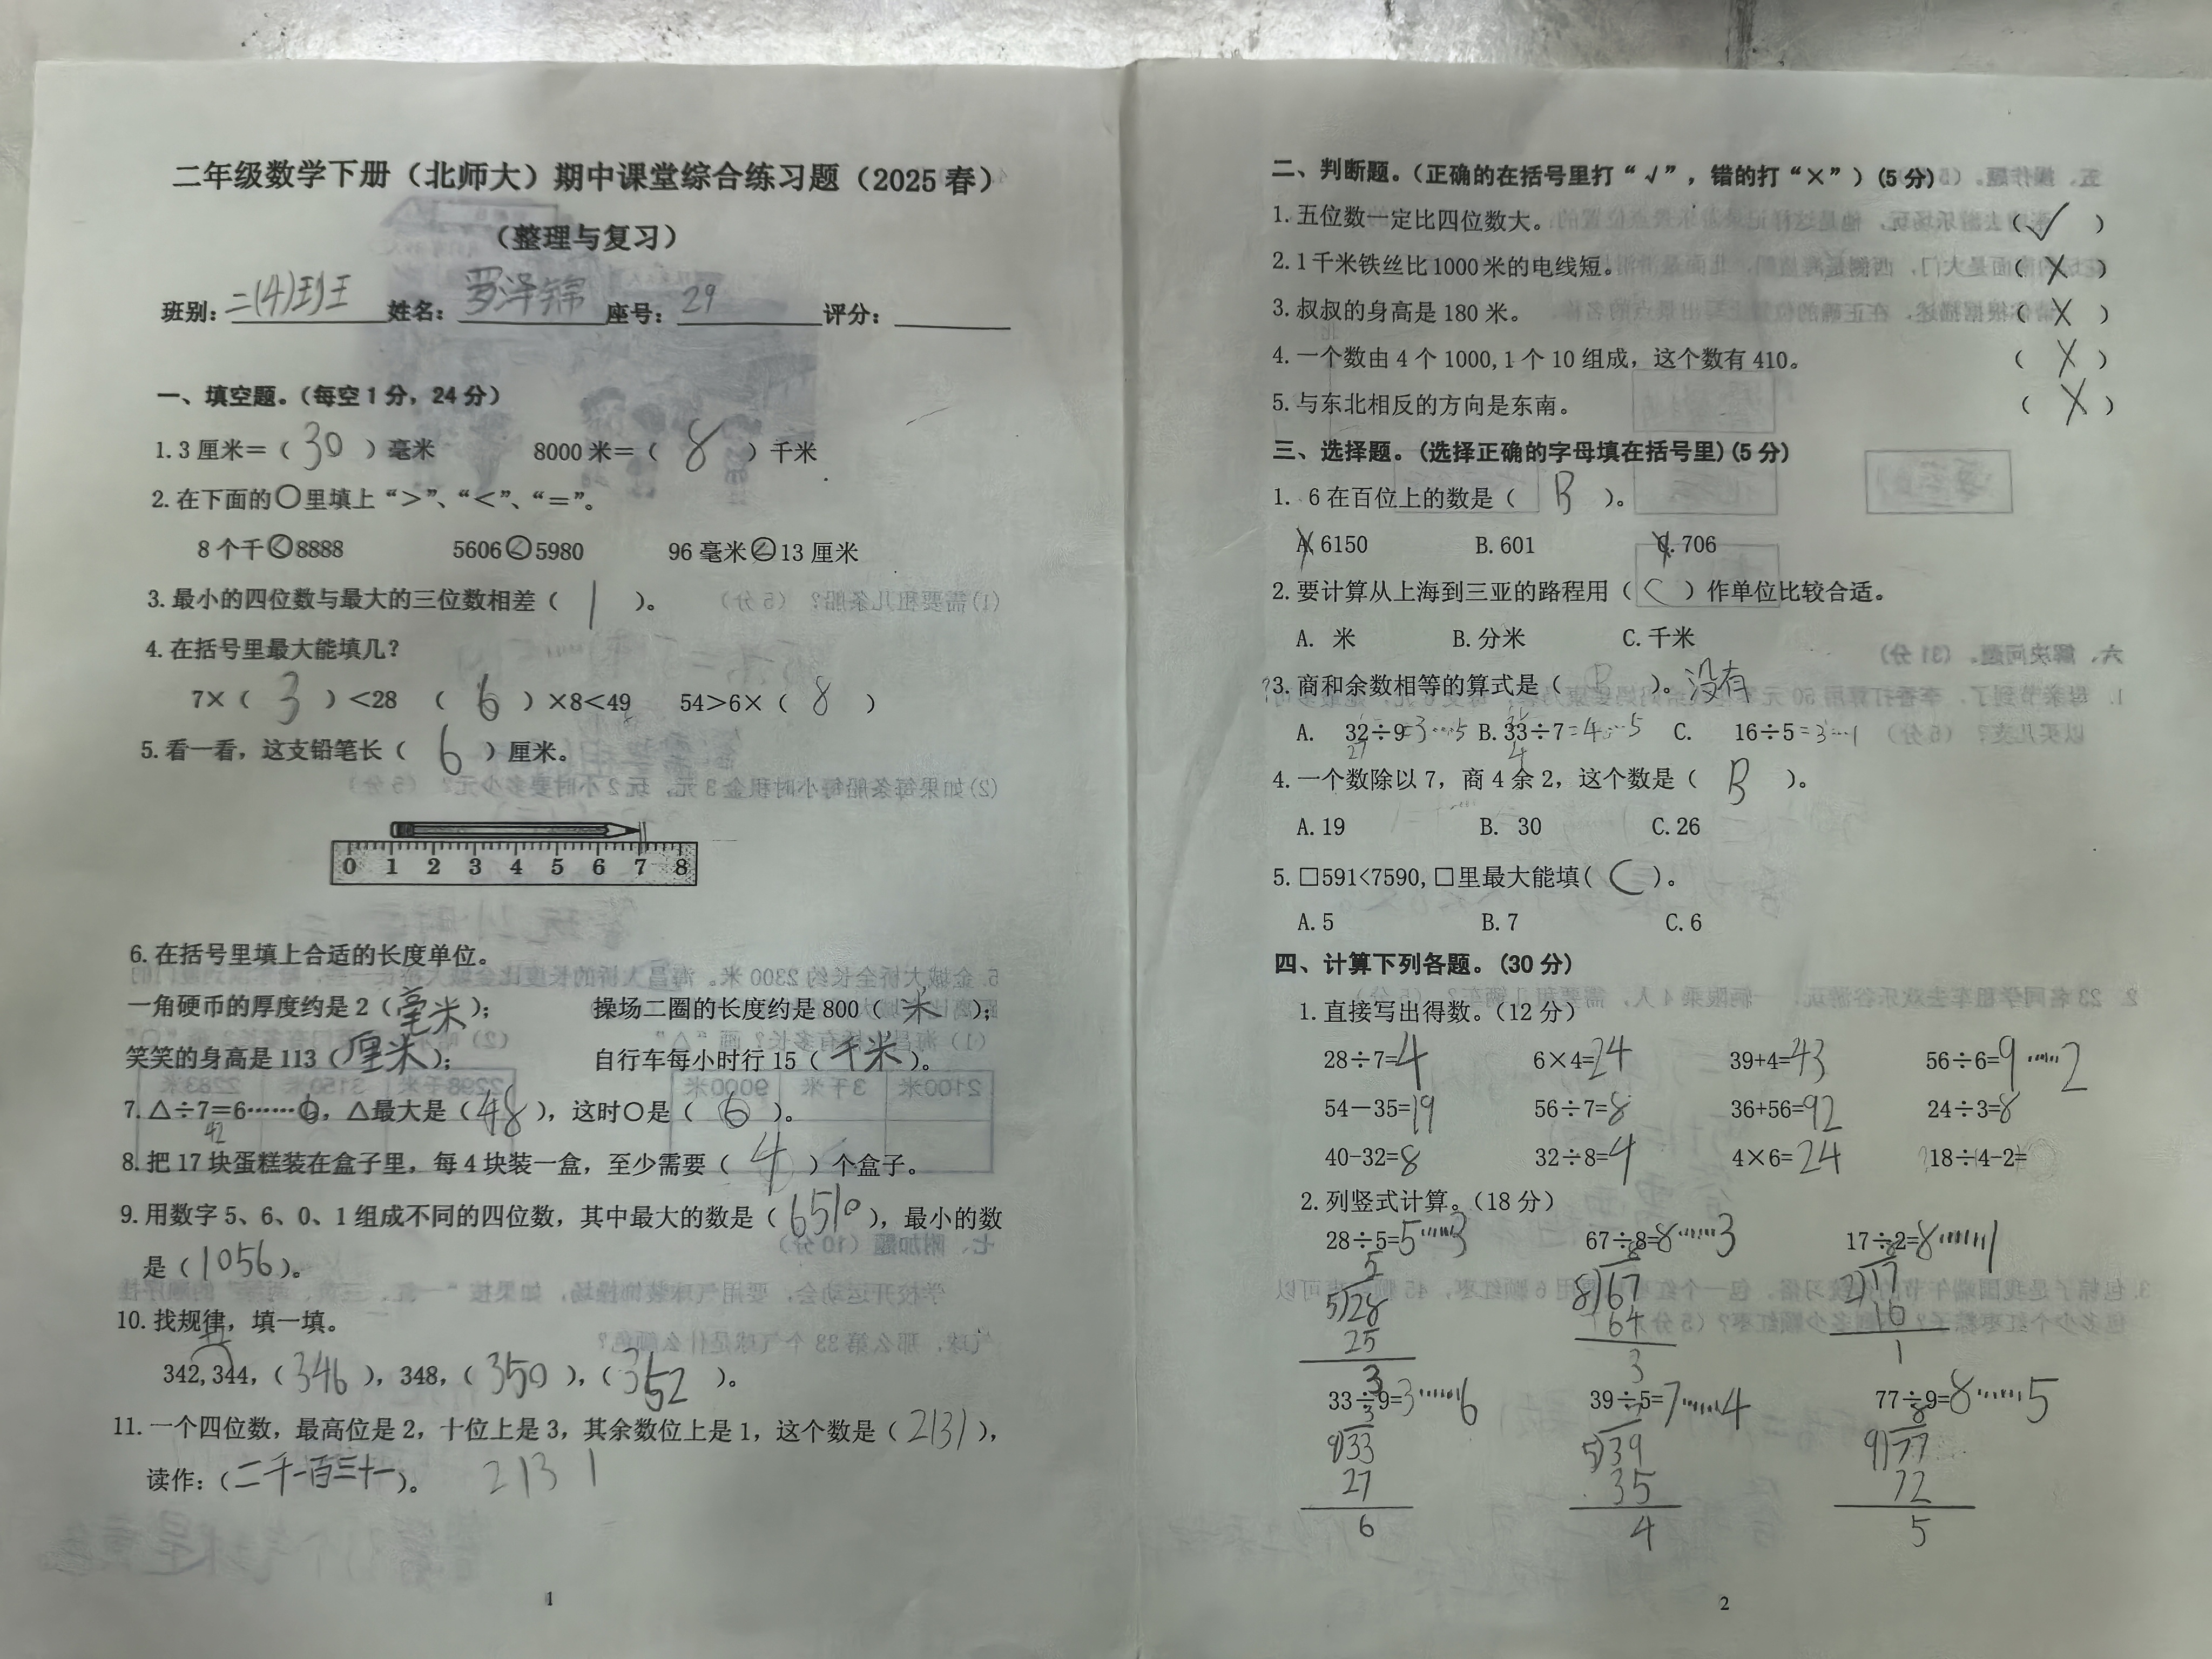 二年级数学下册（北师大）期中课堂综合练习题（2025春）
（整理与复习）
班别：二(4)班 姓名：罗泽锦 座号：29 评分：
一、填空题。（每空1分，24分）
1.3厘米=（ 30 ）毫米 8000米=（ 8 ）千米
2.在下面的○里填上“>”、“<”、“=”。
8个千<8888 5606<5980 96毫米<13厘米
3.最小的四位数与最大的三位数相差（ 1 ）。
4.在括号里最大能填几？
7×（ 3 ）<28 （ 6 ）×8<49 54>6×（ 8 ）
5.看一看，这支铅笔长（ 6 ）厘米。
0 1 2 3 4 5 6 7 8
6.在括号里填上合适的长度单位。
一角硬币的厚度约是2（毫米）； 操场二圈的长度约是800（ 米 ）；
笑笑的身高是113（厘米）； 自行车每小时行15（ 千米 ）。
7.△÷7=6……○，△最大是（48），这时○是（ 6 ）。
42
8.把17块蛋糕装在盒子里，每4块装一盒，至少需要（ 4 ）个盒子。
9.用数字5、6、0、1组成不同的四位数，其中最大的数是（6510），最小的数
是（1056）。
10.找规律，填一填。
342,344,（346），348,（350），（352）。
11.一个四位数，最高位是2，十位上是3，其余数位上是1，这个数是（2131），
读作：（二千一百三十一）。 2131
1
二、判断题。（正确的在括号里打“√”，错的打“×”）(5分)
1.五位数一定比四位数大。 （√）
2.1千米铁丝比1000米的电线短。 （×）
3.叔叔的身高是180米。 （×）
4.一个数由4个1000,1个10组成，这个数有410。 （×）
5.与东北相反的方向是东南。 （×）
三、选择题。(选择正确的字母填在括号里)(5分)
1. 6在百位上的数是（ B ）。
A.6150 B.601 C.706
2.要计算从上海到三亚的路程用（ C ）作单位比较合适。
A. 米 B.分米 C.千米
?3.商和余数相等的算式是（ B ）。没有
A. 32÷9=3…5 B.33÷7=4…5 C. 16÷5=3…1
27
4.一个数除以7，商4余2，这个数是（ B ）。
A.19 B. 30 C.26
5.□591<7590,□里最大能填( C )。
A.5 B.7 C.6
四、计算下列各题。(30分)
1.直接写出得数。（12分）
28÷7=4 6×4=24 39+4=43 56÷6=9……2
54－35=19 56÷7=8 36+56=92 24÷3=8
40-32=8 32÷8=4 4×6=24 18÷(4-2=
2.列竖式计算。（18分）
28÷5=5……3 67÷8=8……3 17÷2=8……1
5 8 8
5)28 8)67 2)17
25 64 16
3 3 1
33÷9=3……6 39÷5=7……4 77÷9=8……5
3 7 8
9)33 5)39 9)77
27 35 72
6 4 5
2